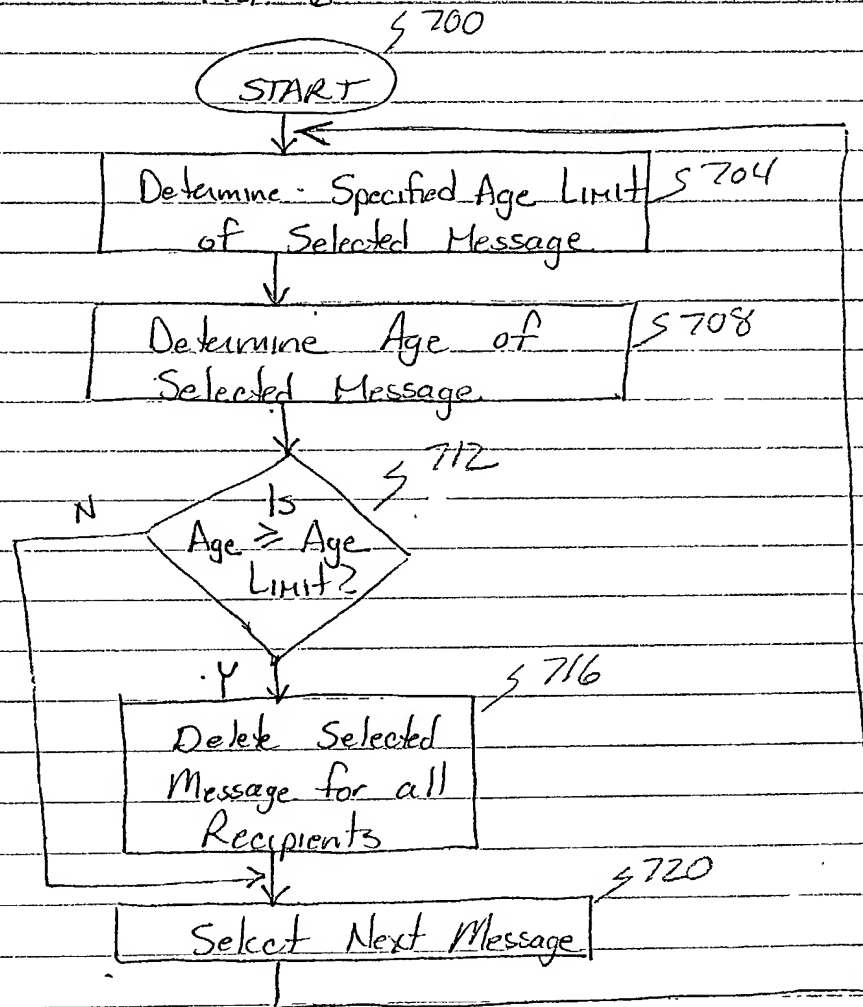 700
START
Determine Specified Age Limit
of Selected Message
704
Determine Age of
Selected Message
708
712
N
Is
Age ≥ Age
Limit?
Y
716
Delete Selected
Message for all
Recipients
720
Select Next Message